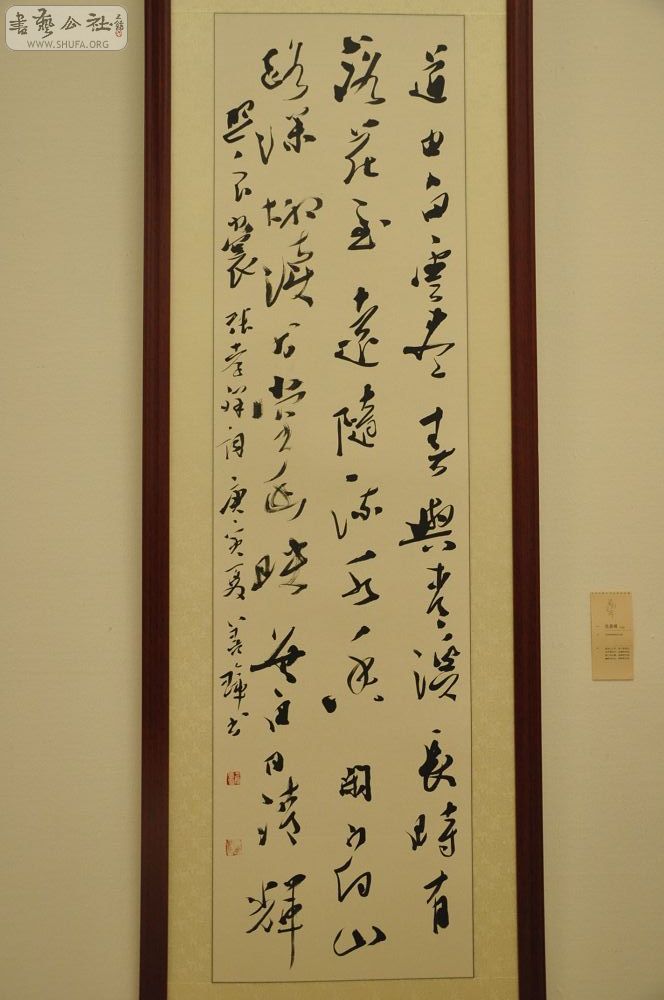 書藝公社
WWW.SHUFA.ORG
道由白雲盡春與青溪長時有
落花至遠隨流水香閑門向山
路深柳讀书堂幽映每白日清輝
照衣裳 張孝祥詞 庚寅夏 善璋书